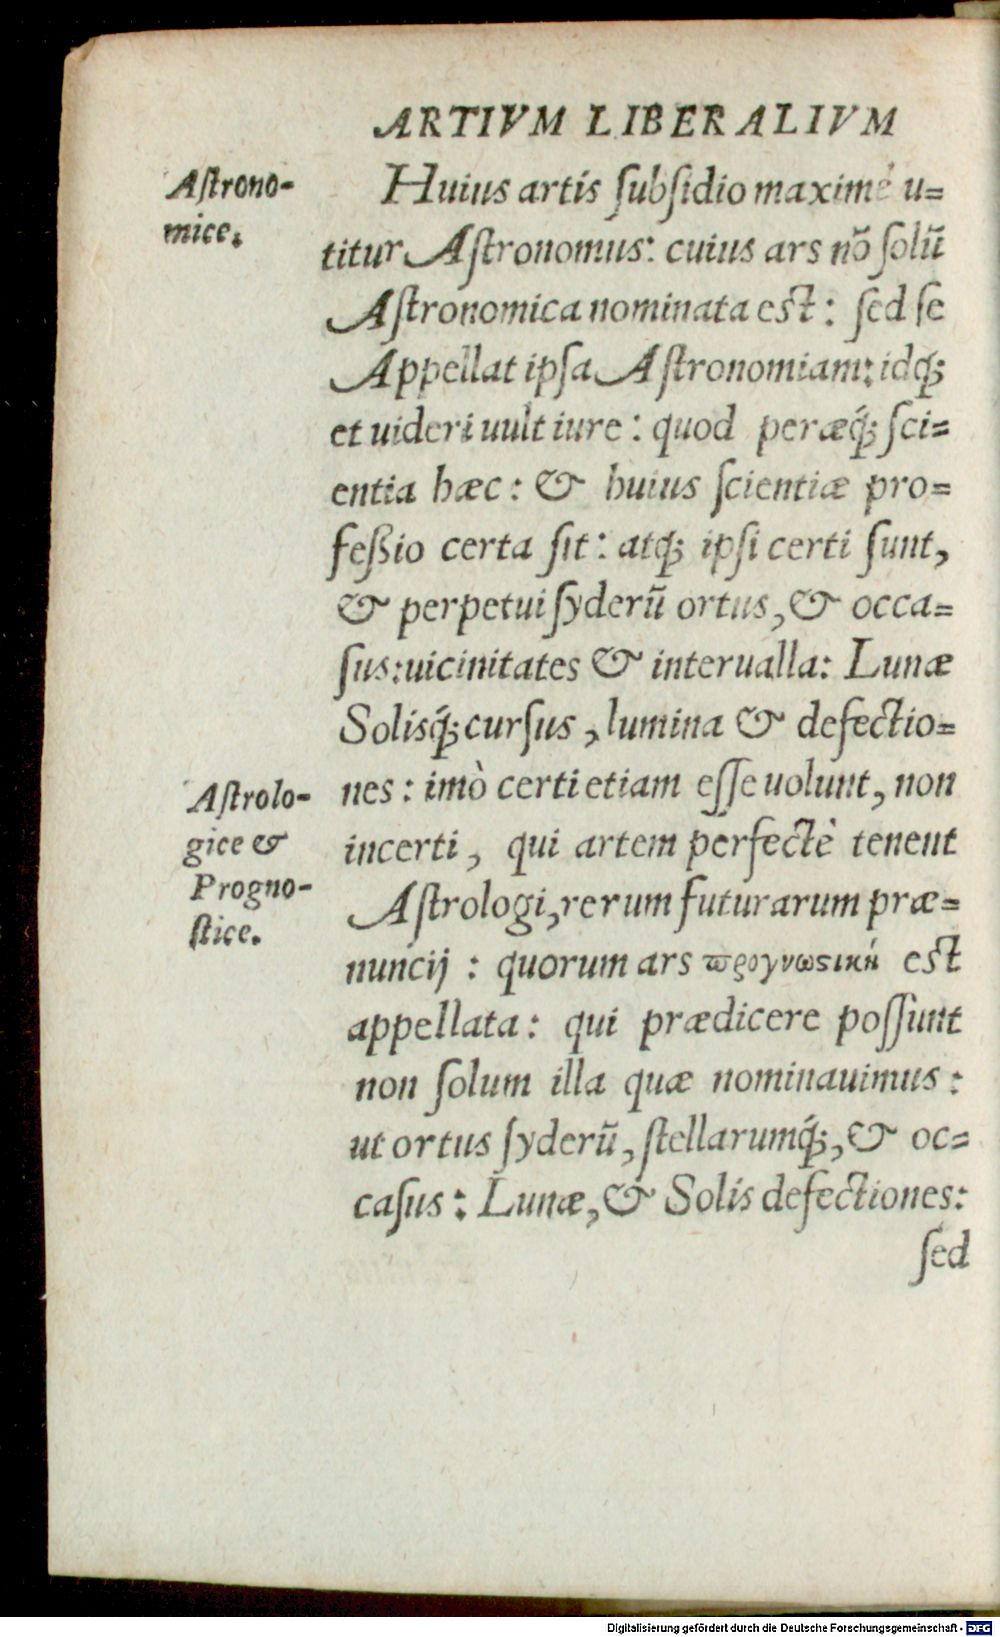 ARTIVM LIBERALIVM
Astrono-
mice.
Huius artis ſubſidio maximè u=
titur Aſtronomus: cuius ars nõ ſolũ
Aſtronomica nominata est: ſed ſe
Appellat ipſa Aſtronomiam: idq́;
et uideri uult iure: quod peræq́; ſci=
entia hæc: & huius ſcientiæ pro=
feßio certa ſit: atq́; ipſi certi ſunt,
& perpetui ſyderũ ortus, & occa=
ſus: uicinitates & interualla: Lunæ
Solisq́; curſus, lumina & defectio=
nes: imò certi etiam eſſe uolunt, non
incerti, qui artem perfectè tenent
Aſtrolo-
gice &
Progno-
ſtice.
Aſtrologi, rerum futurarum præ=
nuncij: quorum ars ϖρογνωϛική est
appellata: qui prædicere poſſunt
non ſolum illa quæ nominauimus:
ut ortus ſyderũ, ſtellarumq́;, & oc=
caſus: Lunæ, & Solis defectiones:
ſed
Digitalisierung gefördert durch die Deutsche Forschungsgemeinschaft - DFG